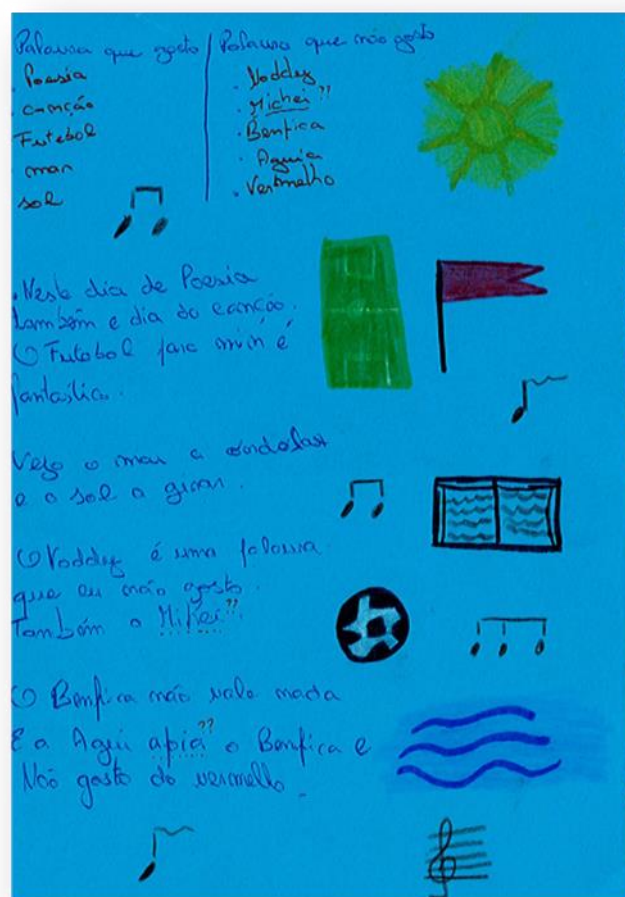 Palavra que gosto
. Poesia
. canção
Futebol
mar
sol
Palavra que não gosto
. Noddy
. Michei ??
. Benfica
. Aguia
. Vermelho
. Neste dia de Poesia
também e dia do canção.
O Futebol para min é
fantastico.
Vejo o mar a ondolar
e o sol a girar.
O Noddy é uma palavra
que eu não gosto.
Também o Mikei ??.
O Benfica não vale nada
E a Agui apia ?? o Benfica e
Não gosto do vermelho.